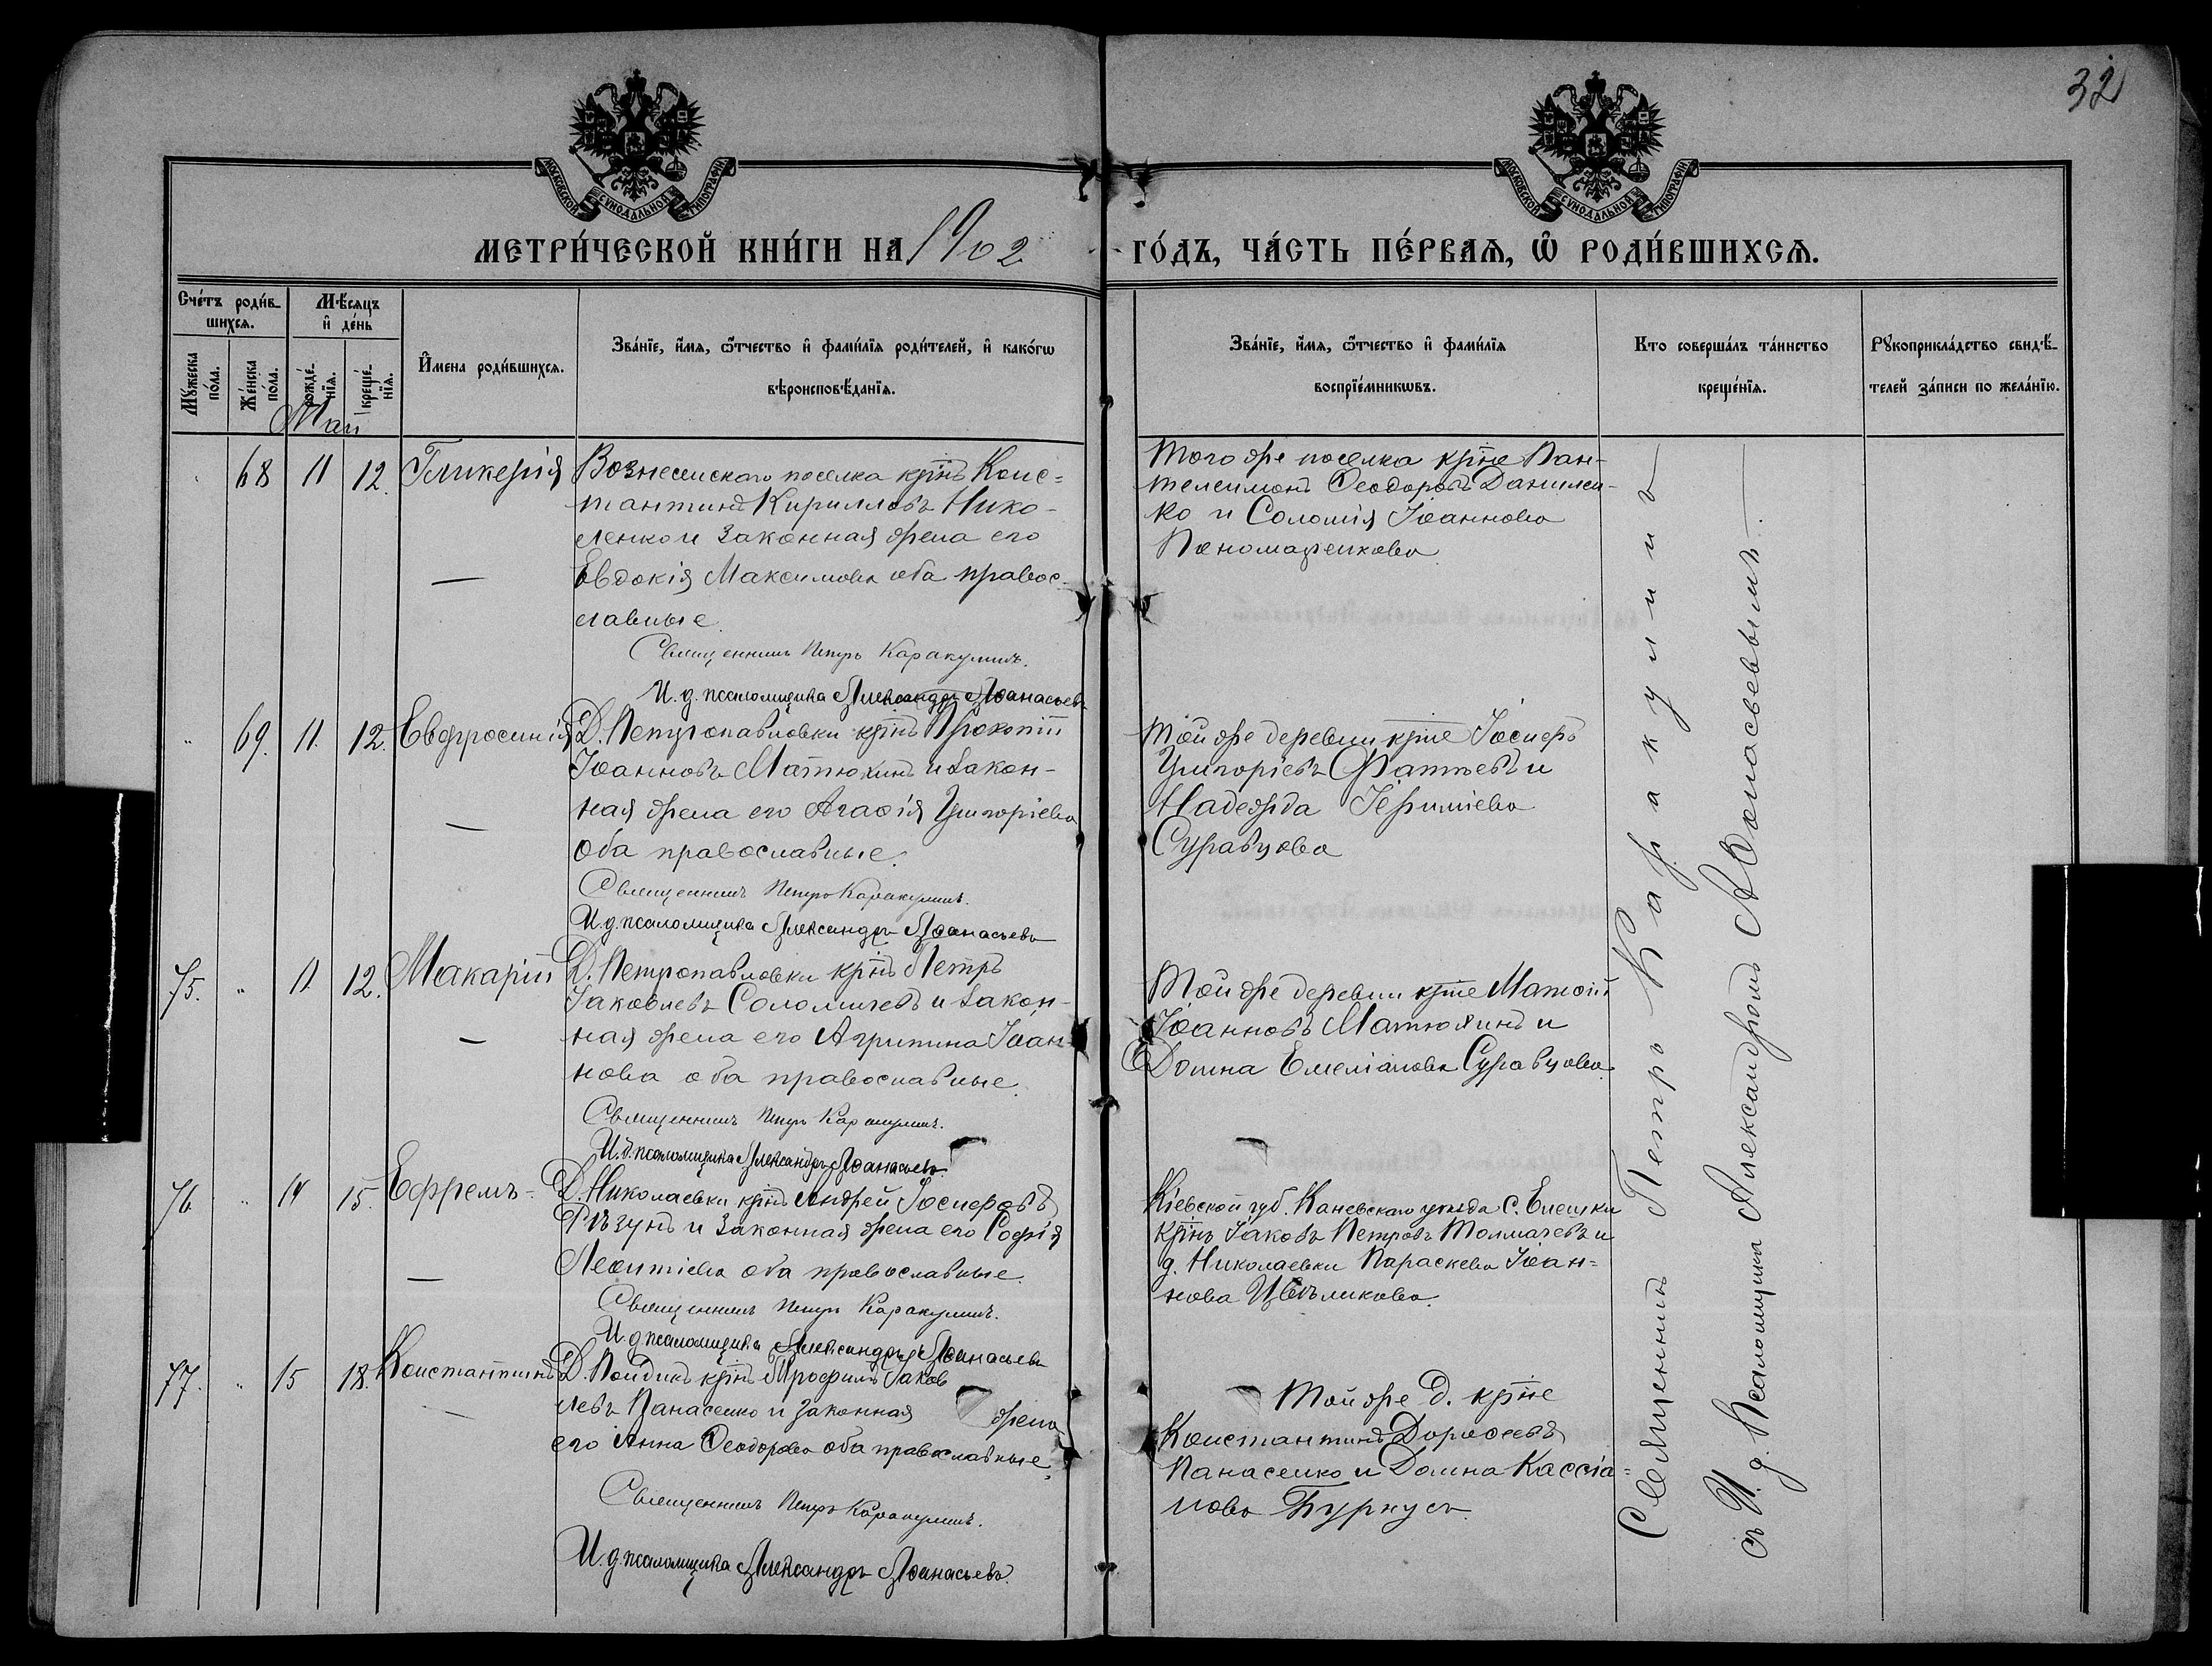 32
МОСКОВСКОЙ СѴНОДАЛЬНОЙ ТИПОГРАФІИ
МОСКОВСКОЙ СѴНОДАЛЬНОЙ ТИПОГРАФІИ
МЕТРИ́ЧЕСКОЙ КНИ́ГИ НА 1902
ГО́ДЪ, ЧА́СТЬ ПЕ́РВАѦ, Ѽ РОДИ́ВШИХСѦ.
Сче́тъ роди́в-
шихсѧ.
Мꙋ́жеска по́ла.
Же́нска по́ла.
Мѣ́сѧцъ
и҆ де́нь
рожде́-нїѧ.
креще́-нїѧ.
И҆мена роди́вшихсѧ.
Зва́нїе, и҆́мѧ, ѻ҆́тчество и҆ фами́лїѧ роди́телей, и҆ како́гѡ
вѣроисповѣ́данїѧ.
Зва́нїе, и҆́мѧ, ѻ҆́тчество и҆ фами́лїѧ
воспрїе́мникѡвъ.
Кто соверша́лъ та́инство
креще́нїѧ.
Рꙋкоприкла́дство свидѣ́-
телей за́писи по жела́нїю.
Маи
68 11 12. Гликерія
Вознесенскаго поселка крнъ Конс=
тантинъ Кирилловъ Нико-
ленко и законная жена его
Евдокія Максимова оба правос-
лавные.
Священникъ Петръ Каракулинъ.
И. д. псаломщика Александръ Аѳанасьевъ
Того же поселка крне Пан-
телеимонъ Ѳеодоровъ Данилен-
ко и Соломія Іоаннова
Пономаренкова
" 69. 11. 12. Евфросинія
Д. Петропавловки крнъ Прокопій
Іоанновъ Матюхинъ и закон-
ная жена его Агаѳія Григоріева
оба православные.
Священникъ Петръ Каракулинъ.
И. д. псаломщика Александръ Аѳанасьевъ
Той же деревни крне Іосифъ
Григоріевъ Фаттевъ и
Надежда
Суравцова
75. " 11. 12. Макарій
Д. Петропавловки крнъ Петръ
Іаковлевъ Соломичевъ и закон-
ная жена его Агрипина Іоан-
нова оба православные.
Священникъ Петръ Каракулинъ.
И. д. псаломщика Александръ Аѳанасьевъ
Той же деревни крне Матѳій
Іоанновъ Матюхинъ и
Домна Емеліанова Суравцова.
76. " 14 15. Ефремъ-
Д. Николаевки крнъ Андрей Іосифовъ
Рѣзунъ и законная жена его Софія
Леонтіева оба православные.
Священникъ Петръ Каракулинъ.
И. д. псаломщика Александръ Аѳанасьевъ
Кіевской губ. Каневскаго уѣзда с.
крнъ Іаковъ Петровъ Толмачевъ и
д. Николаевки Параскева Іоан=
нова Цвѣликова.
77. " 15 18. Константинъ
Д. крнъ Трофимъ Іаков
левъ Панасенко и законная жена
его Анна Ѳеодорова оба православные.
Священникъ Петръ Каракулинъ.
И. д. псаломщика Александръ Аѳанасьевъ.
Той же д. крне
Константинъ Дороѳеевъ
Панасенко и Домна Кассіа=
нова Буркусъ.
Священникъ Петръ Каракулинъ
съ И. д. Псаломщика Александромъ Аѳонасьевымъ.